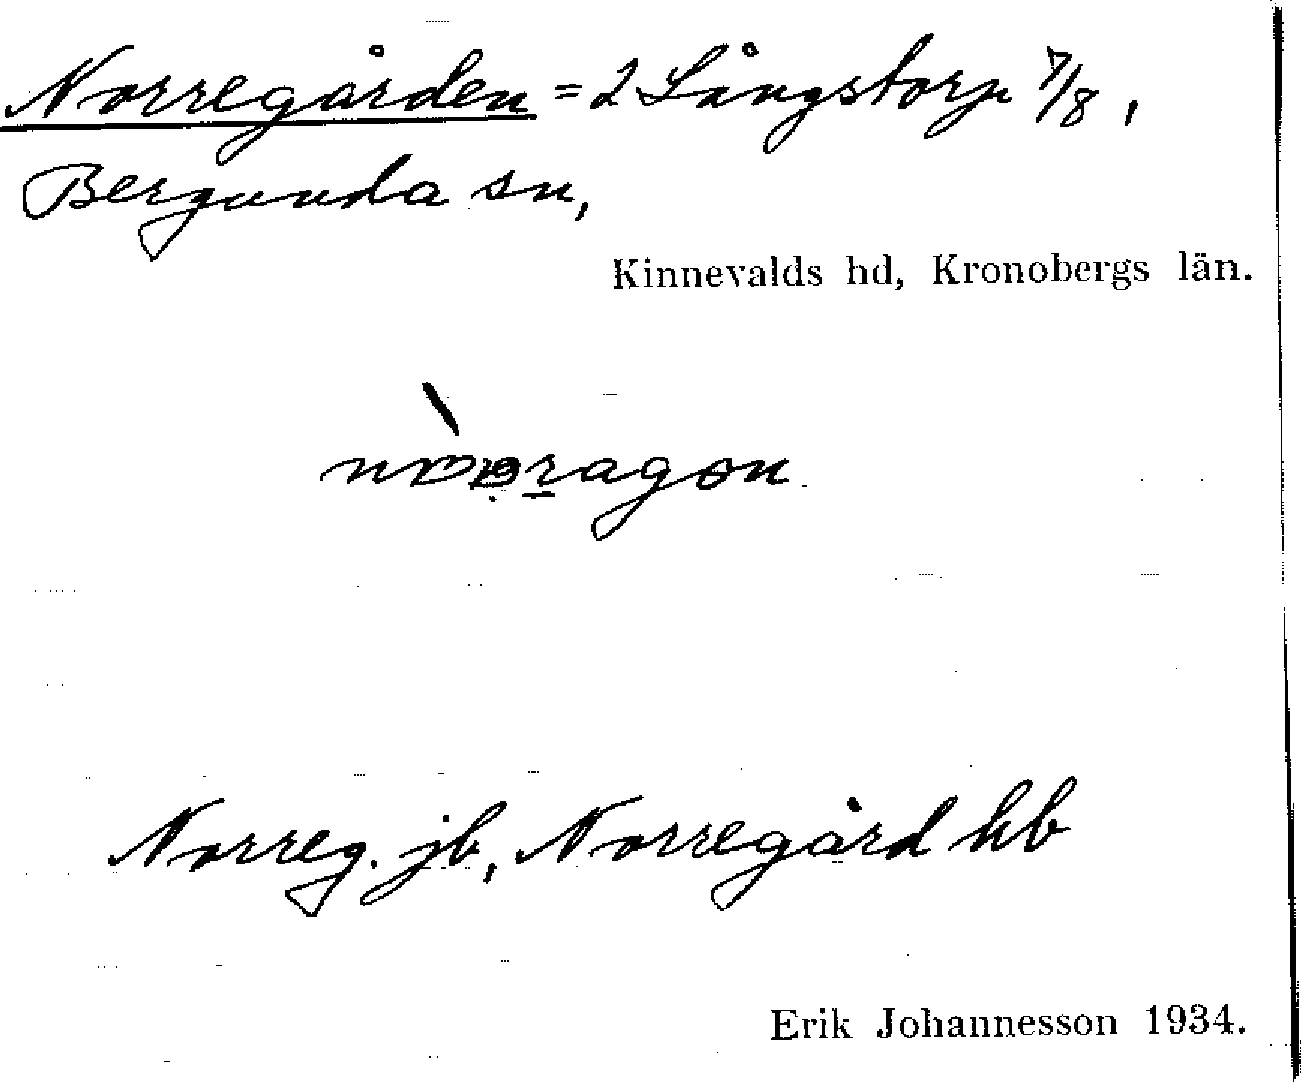 Norregården = 2 Långstorp 7/8,
Bergunda sn,
Kinnevalds hd, Kronobergs län.
Norreg. jb, Norregård hb
Erik Johannesson 1934.